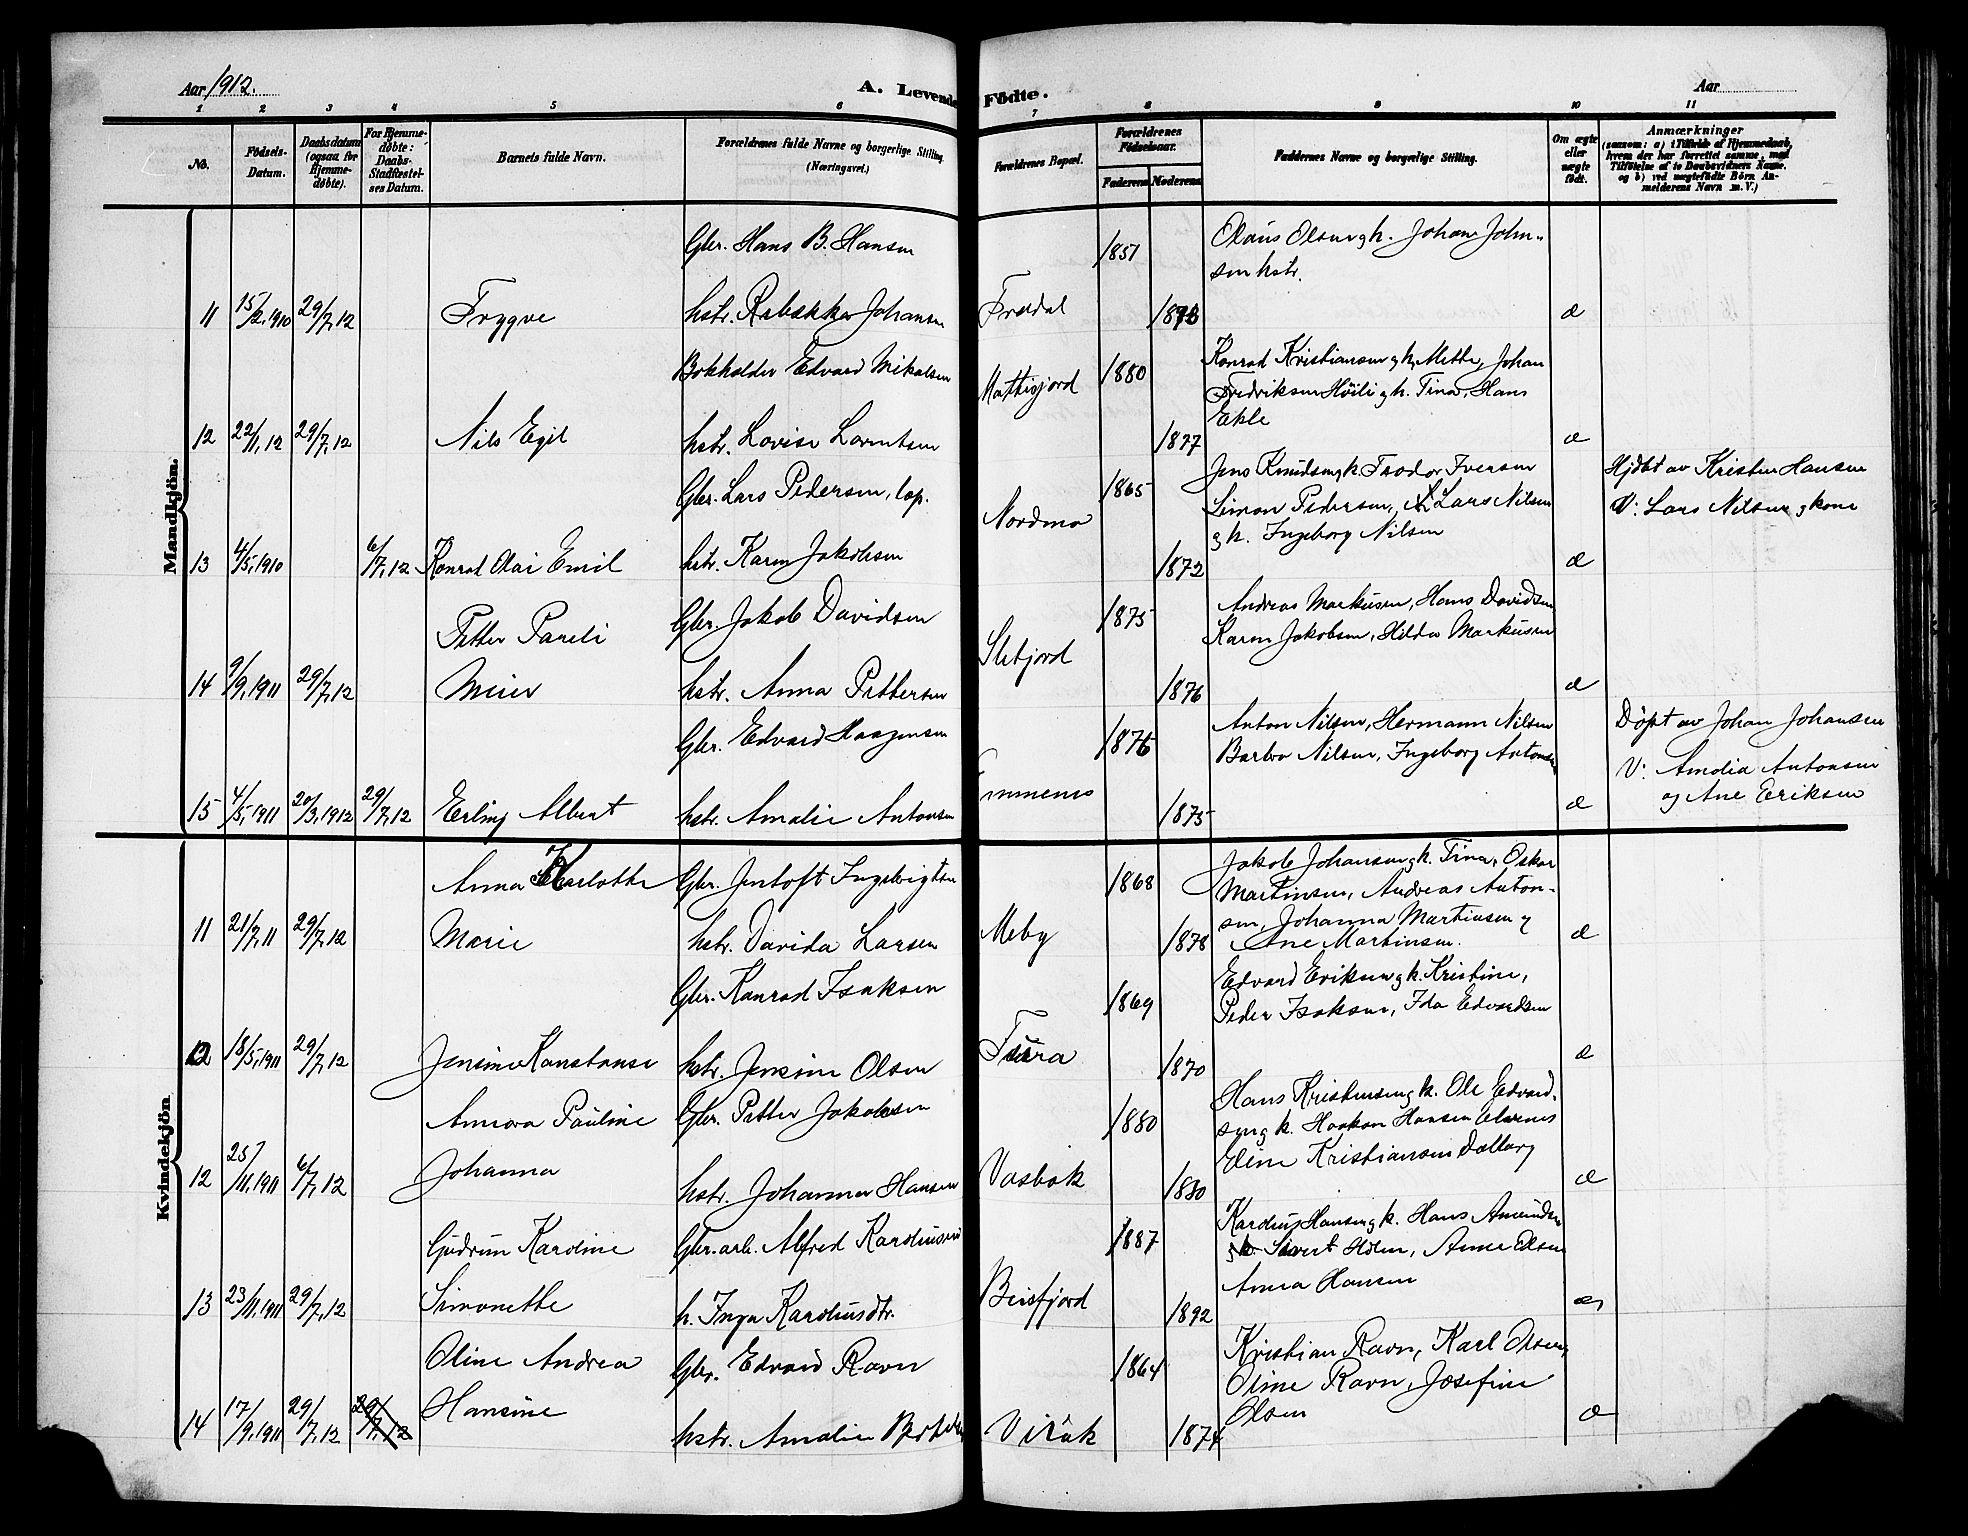 Aar 1912.
A. Levende Födte.
Aar
1 2 3 4 5 6 7 8 9 10 11
No.
Födsels-
Datum.
Daabsdatum
(ogsaa for
Hjemme-
döbte).
For Hjemme-
döbte:
Daabs-
Stadfæstel-
ses Datum.
Barnets fulde Navn.
Forældrenes fulde Navne og borgerlige Stilling.
(Næringsvei.)
Forældrenes Bopæl.
Forældrenes
Födselsaar.
Faderens Moderens
Faddernes Navne og borgerlige Stilling.
Om ægte
eller
uægte
födt.
Anmærkninger
(saasom: a) i Tilfælde af Hjemmedaab,
hvem der har forrettet samme, med
Tilföielse af to Daabsvidners Navne.
og b) ved uægtefödte Börn An-
melderens Navn m. V.)
Mandkjön.
Gbr. Hans B. Hansen 1851 Olaus Olsen g k. Johan John-
sen hstr.
11 15/2, 1910 29/7, 12 Trygve hstr. Rebekka Johansen 
Bokholder Edvard Mikalsen Mattisjord 1880 Konrad Kristiansen g k, Methe, Johan
Fredriksen Höili g k. Tina, Hans
12 22/1, 12 29/7, 12 Nils Egil hstr. Lovise Lorentsen 1877 æ
Gbr. Lars Pedersen, lap. Nordmo 1865 Jens Knudsen g k. Teodor Iversen Hjdbt av Kristen Hansen
Simon Pedersen, Lars Nilsen V: Lars Nilsen g kone
g k. Ingeborg Nilsen
13 4/5, 1910 6/7, 12 Konrad Olai Emil hstr. Karen Jakobsen 1872 æ
Petter Pareli Gbr. Jakob Davidsen 1875 Andreas Markusen, Hans Davidsen
Karen Jakobsen, Hilda Markusen
14 9/9, 1911 29/7, 12 Meier hstr. Anna Pettersen Sletjord 1876 æ
Gbr. Edvard Haagensen 1876 Anton Nilsen, Hermann Nilsen Döpt av Johan Johansen
Barbro Nilsen, Ingeborg Antonsen V: Amolia Antonsen
og Ane Eriksen
15 4/5, 1911 20/3, 1912 29/7, 12 Erling Albert hstr. Amalie Antonsen 1875 æ
Kvindekjön
Anna Karlotte Gbr. Jentoft Ingebrigtsen 1868 Jakob Johansen g k. Tina, Oskar
Martinsen, Andreas Anton-
11 21/7, 11 29/7, 12 Marie hstr. Davida Larsen Meby 1878 sen, Johanna Martinsen g æ
Ane Martinsen.
Gbr. Konrad Isaksen 1869 Edvard Eriksen g k. Kristine,
Peder Isaksen, Ida Edvardsen
12 18/5, 1911 29/7, 12 Jensine Konstanse hstr. Jensine Olsen 1870 æ
Annora Pauline Gbr. Petter Jakobsen 1880 Hans Kristensen g k. Ole Edvard-
sen g k. Haakon Hansen Elvenes
12 25/11, 1911 6/7, 12 Johanna hstr. Johanna Hansen Vasbak 1880 Eline Kristiansen æ
Gudrun Karoline Gbr. arb. Alfred Karolinsen 1887 Hansen g k. Hans Amundsen
Sivert Holm, Anne Olsen
13 23/11, 1911 29/7, 12 Simonette h. Inga Beisfjord 1892 Anna Hansen æ
Oline Andrea Gbr. Edvard Ravn 1864 Kristian Ravn, Karl Olsen,
Oline Ravn, Josefine
14 17/9, 1911 29/7, 12 29/7, 12 Hansine hstr. Amalie Virak 1874 Olsen æ